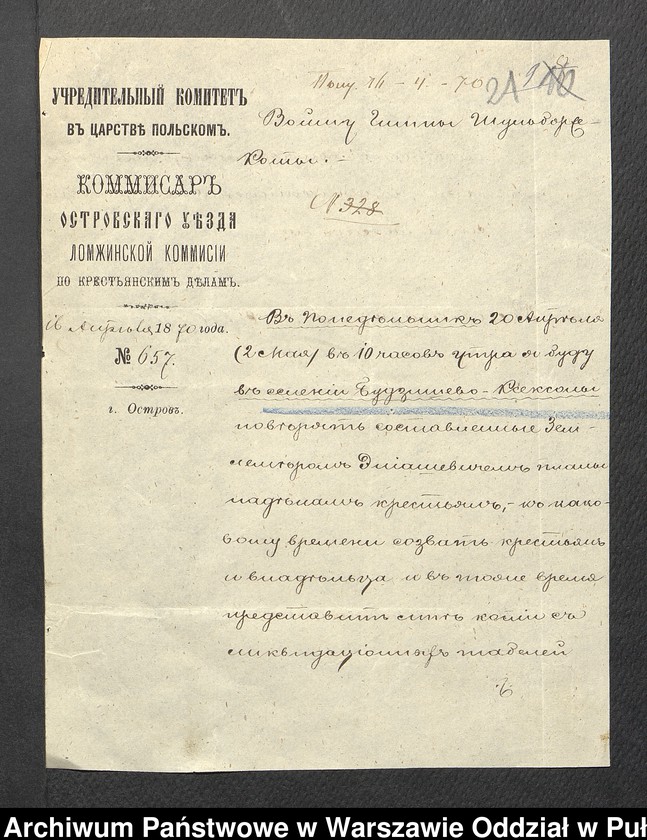 Полу. 16 - 4 - 70
УЧРЕДИТЕЛЬНЫЙ КОМИТЕТЪ
ВЪ ЦАРСТВѢ ПОЛЬСКОМЪ.
КОММИСАРЪ
ОСТРОВСКАГО УѢЗДА
ЛОМЖИНСКОЙ КОММИСІИ
ПО КРЕСТЬЯНСКИМЪ ДѢЛАМЪ.
16 Апрѣля 1870 года.
№ 657.
г. Островъ.
Войту Гмины Шульборже-
Коты.
№ 328
Въ Понедѣльникъ 20 Апрѣля
(2 Мая) въ 10 часовъ утра я буду
въ селеніи Будзишево-
повторять составленные Зем-
лемѣромъ планы
надѣламъ крестьянъ, - къ како-
вому времени созвать крестьянъ
и владѣльца и въ тоже время
представить мнѣ копіи съ
ликвидаціонныхъ табелей
Archiwum Państwowe w Warszawie Oddział w Puł